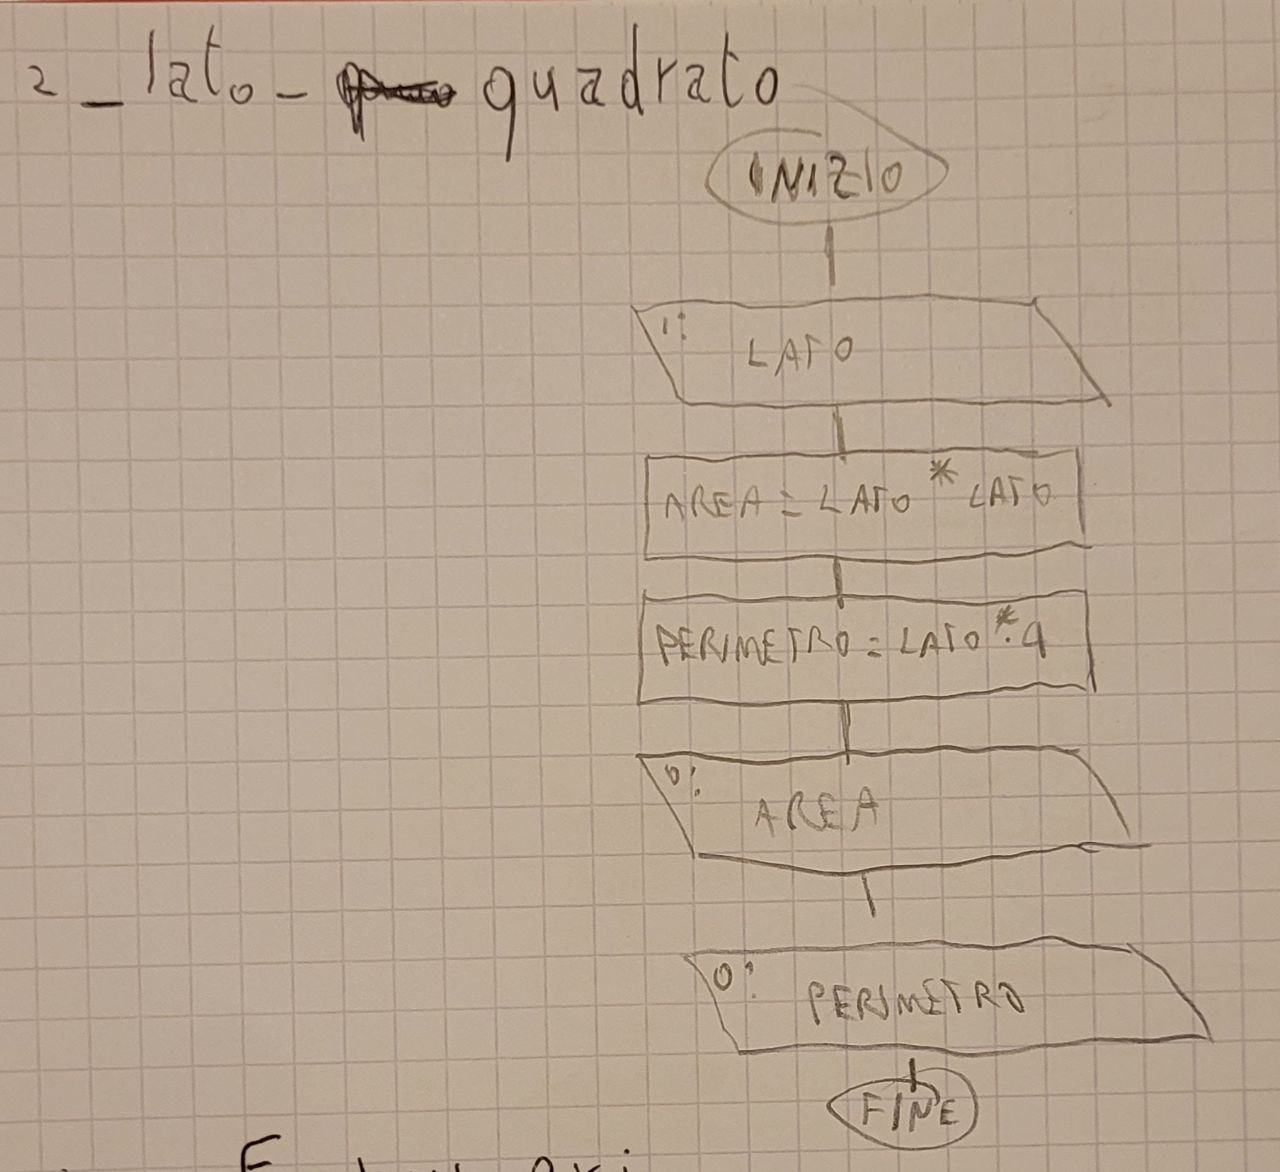 2_lato_quadrato
INIZIO
i: LATO
AREA = LATO * LATO
PERIMETRO = LATO * 4
O: AREA
O: PERIMETRO
FINE